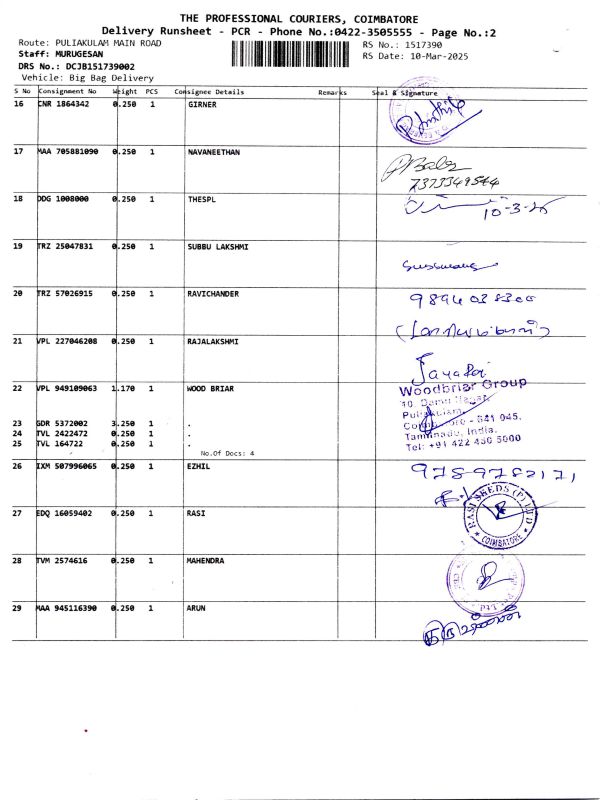 THE PROFESSIONAL COURIERS, COIMBATORE
Delivery Runsheet - PCR - Phone No.:0422-3505555 - Page No.:2
Route: PULIAKULAM MAIN ROAD
RS No.: 1517390
Staff: MURUGESAN
RS Date: 10-Mar-2025
DRS No.: DCJB151739002
Vehicle: Big Bag Delivery
S No Consignment No Weight PCS Consignee Details Remarks Seal & Signature
16 CNR 1864342 0.250 1 GIRNER
17 MAA 705881090 0.250 1 NAVANEETHAN
7373349544
18 DDG 1008000 0.250 1 THESPL
10-3-25
19 TRZ 25047831 0.250 1 SUBBU LAKSHMI
20 TRZ 57026915 0.250 1 RAVICHANDER
21 VPL 227046208 0.250 1 RAJALAKSHMI
22 VPL 949109063 1.170 1 WOOD BRIAR
Woodbriar Group
Puliakulam
Coimbatore - 641 045.
Tamilnadu, India.
Tel: +91 422 430 5000
23 GDR 5372002 3.250 1 .
24 TVL 2422472 0.250 1 .
25 TVL 164722 0.250 1 .
No.Of Docs: 4
26 IXM 507996065 0.250 1 EZHIL
9789782171
27 EDQ 16059402 0.250 1 RASI
RASI SEEDS (P) LTD
COIMBATORE
28 TVM 2574616 0.250 1 MAHENDRA
29 MAA 945116390 0.250 1 ARUN